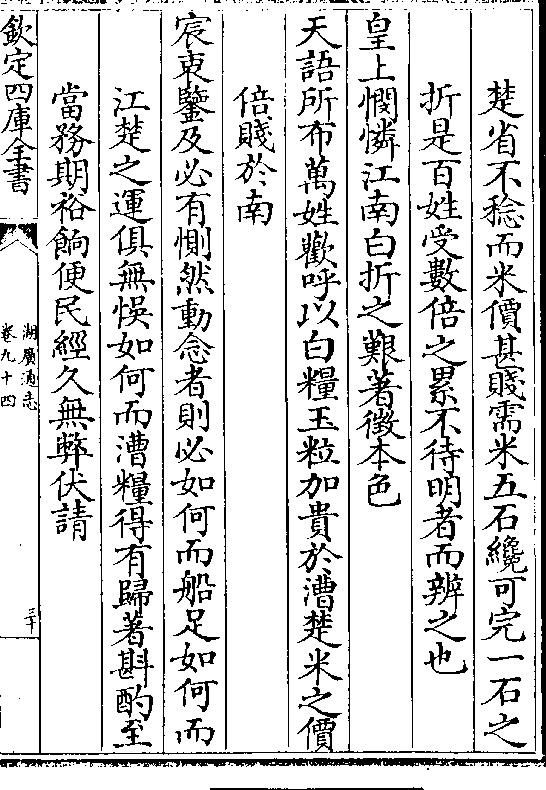 楚省不稔而米價甚賤需米五石纔可完一石之
折是百姓受數倍之累不待明者而辨之也
皇上憫憐江南白折之艱著徵本色
天語所布萬姓歡呼以白糧玉粒加貴於漕楚米之價
倍賤於南
宸衷鑒及必有惻然動念者則必如何而船足如何而
江楚之運俱無悞如何而漕糧得有歸著斟酌至
當務期裕餉便民經久無弊伏請
欽定四庫全書
湖廣通志
卷九十四
三十